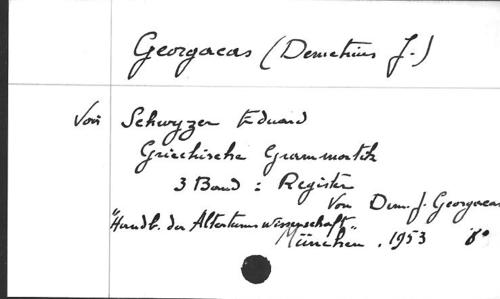 Georgacas (Demetrius J.)
Voir Schwyzer Eduard
Griechische Grammatik
3 Band : Register
von Dem. J. Georgacas
"Handb. der Altertumswissenschaft"
München, 1953 8°